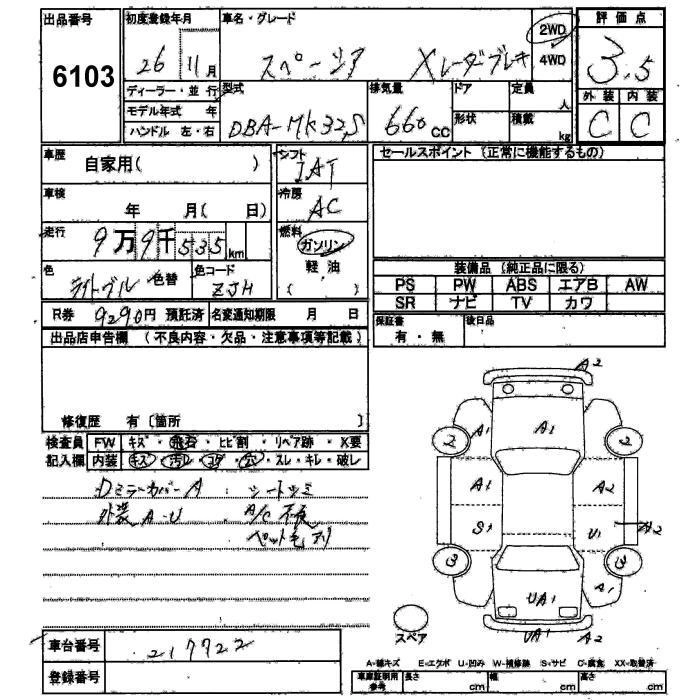 出品番号 初度登録年月 車名・グレード 評価点
6103 26 11月 スペーシア Xレーダーブレーキ 2WD 4WD 3.5
ディーラー・並行 型式 排気量 ドア 定員 人 外装 内装
モデル年式 年 DBA-MK32S 660cc 形状 積載 kg C C
ハンドル 左・右
車歴 自家用( ) シフト IAT セールスポイント (正常に機能するもの)
車検 年 月( 日) 冷房 AC
走行 9万9千535km 燃料 ガソリン
軽油
( )
色 ライトブル 色替 色コード ZJH
装備品 (純正品に限る)
PS PW ABS エアB AW
SR ナビ TV カワ
R券 9290円 預託済 名変通知期限 月 日
保証書 有・無 後日品
出品店申告欄 (不良内容・欠品・注意事項等記載)
修復歴 有〔箇所 〕
検査員 FW キズ・飛石・ヒビ割・リペア跡・X要
記入欄 内装 キズ・汚レ・コゲ・穴・スレ・キレ・破レ
Dミラーカバー A シートシミ
外装 A・U A/C不良
ペット毛アリ
A2
A1 A1
2 2
A1 A2
S1 U1 A2
3 3
UA1 A1
スペア UA1 A2
車台番号 217722
登録番号
A=線キズ E=エクボ U=凹み W=補修跡 S=サビ C=腐食 XX=取替済
車庫証明用参考 長さ cm 幅 cm 高さ cm